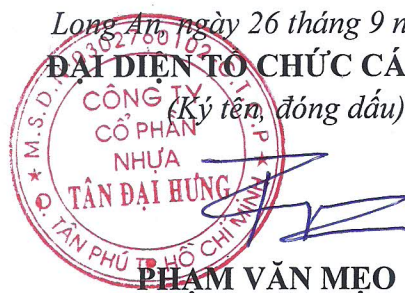 Long An, ngày 26 tháng 9 n
ĐẠI DIỆN TỔ CHỨC CÁ
(Ký tên, đóng dấu)
CÔNG TY
CỔ PHẦN
NHỰA
TÂN ĐẠI HƯNG
Q. TÂN PHÚ TP HỒ CHÍ MINH
PHẠM VĂN MẸO